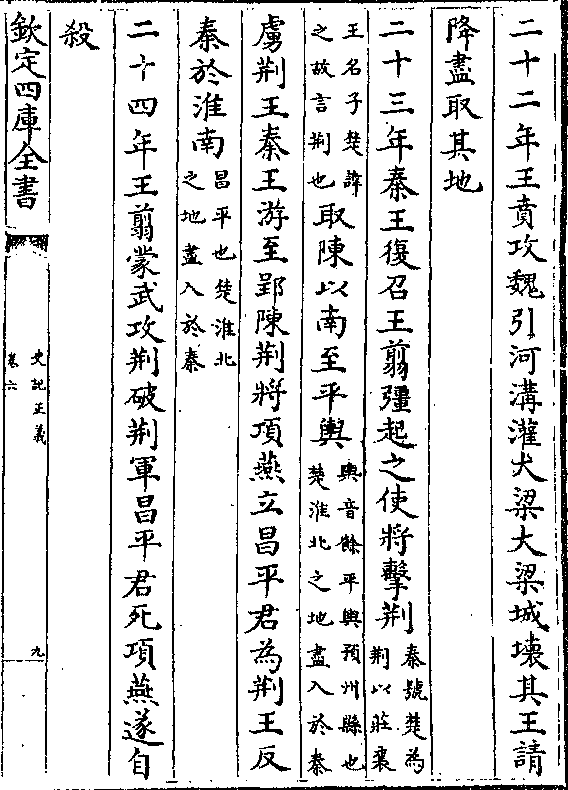 二十二年王賁攻魏引河溝灌大梁大梁城壊其王請
降盡取其地
二十三年秦王復召王翦彊起之使將擊荆秦號楚為荆以莊襄
王名子楚諱之故言荆也取陳以南至平輿輿音餘平輿預州縣也楚淮北之地盡入於秦
虜荆王秦王游至郢陳荆將項燕立昌平君為荆王反
秦於淮南昌平也楚淮北之地盡入於秦
二十四年王翦蒙武攻荆破荆軍昌平君死項燕遂自
殺
欽定四庫全書
史記正義
卷六
九